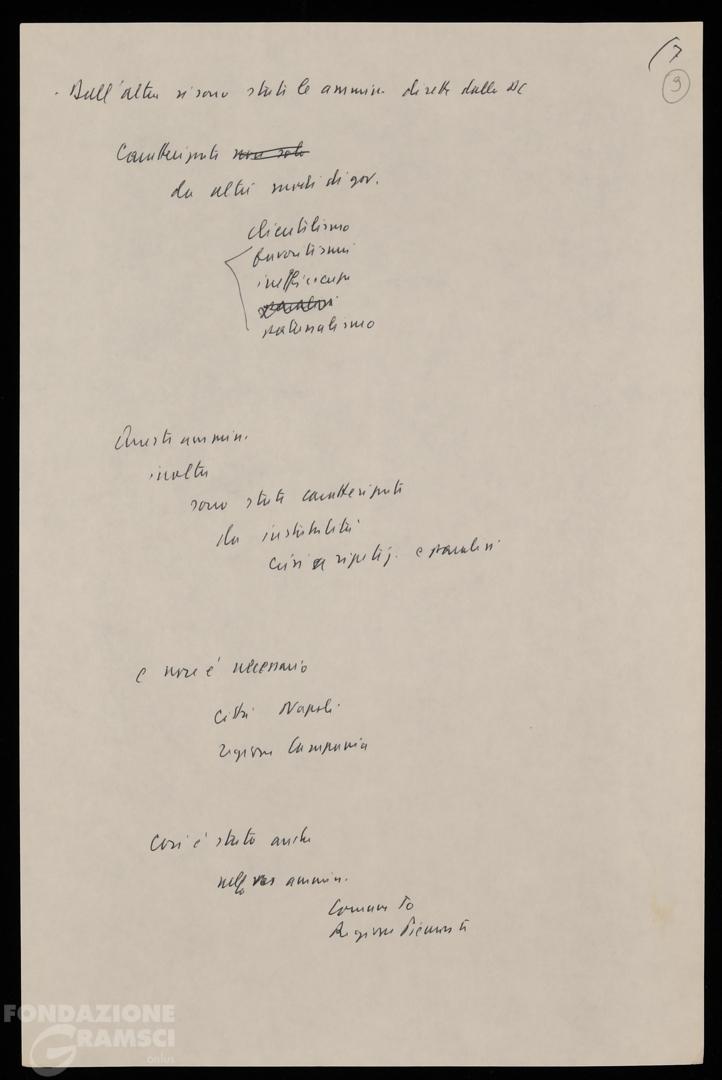 (7
3
. Dall'altra vi sono state le ammin. dirette dalla DC
Caratterizzate non solo
da altri modi di gov.
clientelismo
favoritismi
inefficienza
paralisi
paternalismo
Queste ammin.
inoltre
sono state caratterizzate
da instabilità
crisi a ripetiz. e paralisi
e non è necessario
città Napoli.
regione Campania
Così è stato anche
ammin.
Comune To
Regione Piemonte
FONDAZIONE
GRAMSCI
onlus